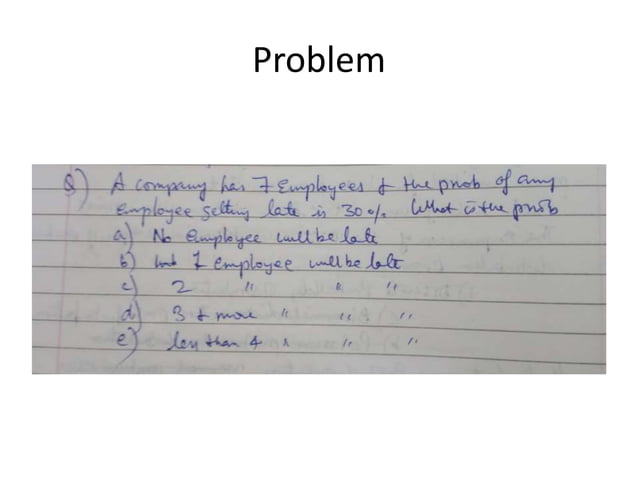 Problem
Q) A company has 7 Employees & the prob of any
employee getting late is 30%. What is the prob
a) No employee will be late
b) 1 employee will be late
c) 2 " " "
d) 3 & more " " "
e) less than 4 " " "